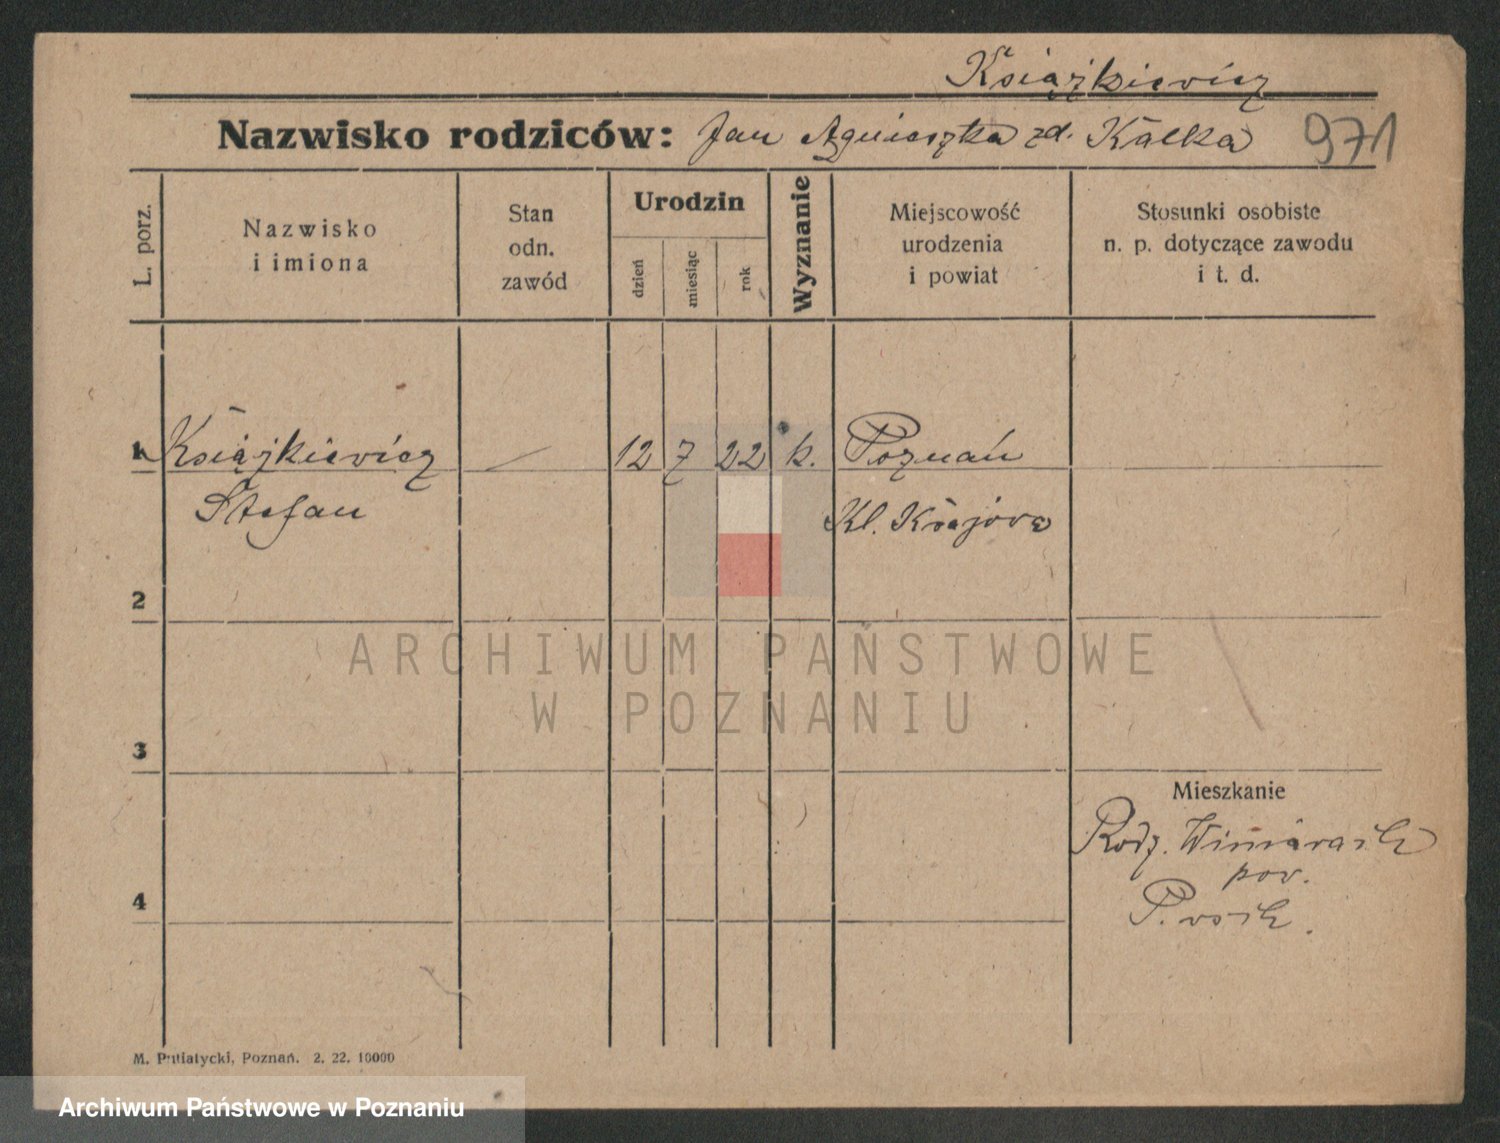 Książkiewicz
Nazwisko rodziców: Jan Agnieszka zd. Kałka 971
L. porz.
Nazwisko
i imiona
Stan
odn.
zawód
Urodzin
dzień
miesiąc
rok
Wyznanie
Miejscowość
urodzenia
i powiat
Stosunki osobiste
n. p. dotyczące zawodu
i t. d.
1 Książkiewicz — 12 7 22 k. Poznań
Stefan Kl.
2
ARCHIWUM PAŃSTWOWE
W POZNANIU
3
Mieszkanie
Rodz.
pow.
4
M. Putiatycki, Poznań. 2. 22. 10000
Archiwum Państwowe w Poznaniu